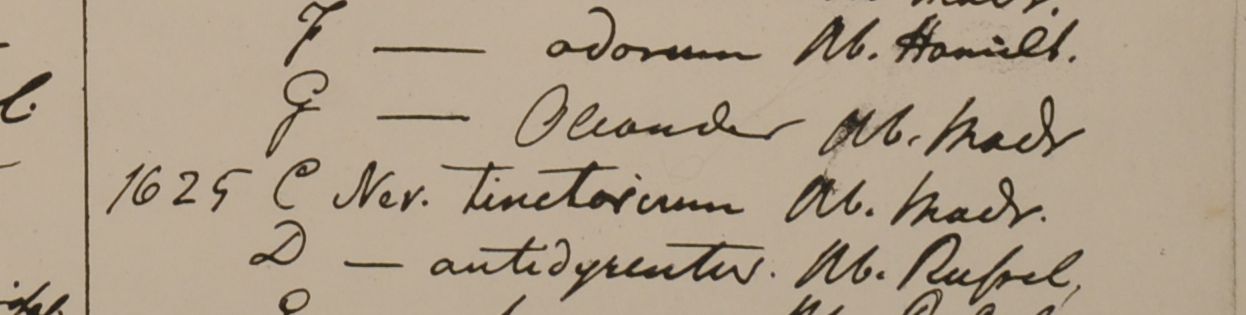 F — odorum Hb. Hamilt.
G — Oleander Hb. Madr
1625 C Ner. tinctorium Hb. Madr.
D — antidysenter. Hb. Rußel,